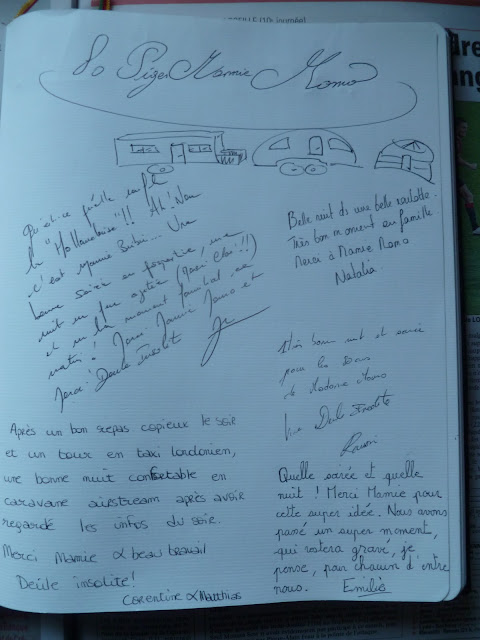 80 Piges Mamie Momo
Qu'est-ce qu'elle ronfle
la "Hollandaise"!! Ah! Non
c'est Mamie Une
bonne soirée en perspective, une
nuit un peu agitée !!)
et un moment familial ce
matin! Merci Momo et
Merci! Deûle Insolite
Belle nuit ds une belle roulotte.
Très bon moment en famille
Merci à Mamie Momo
Natalia.
Très bonne nuit et soirée
pour les 80 ans
de Madame Momo
Vive Deûle Insolite
Après un bon repas copieux le soir
et un tour en taxi londonien,
une bonne nuit confortable en
caravane airstream après avoir
regardé les infos du soir.
Merci Mamie & beau travail
Deûle insolite!
Corentine & Matthias
Quelle soirée et quelle
nuit ! Merci Mamie pour
cette super idée. Nous avons
passé un super moment,
qui restera gravé, je
pense, par chacun d'entre
nous. Emilie